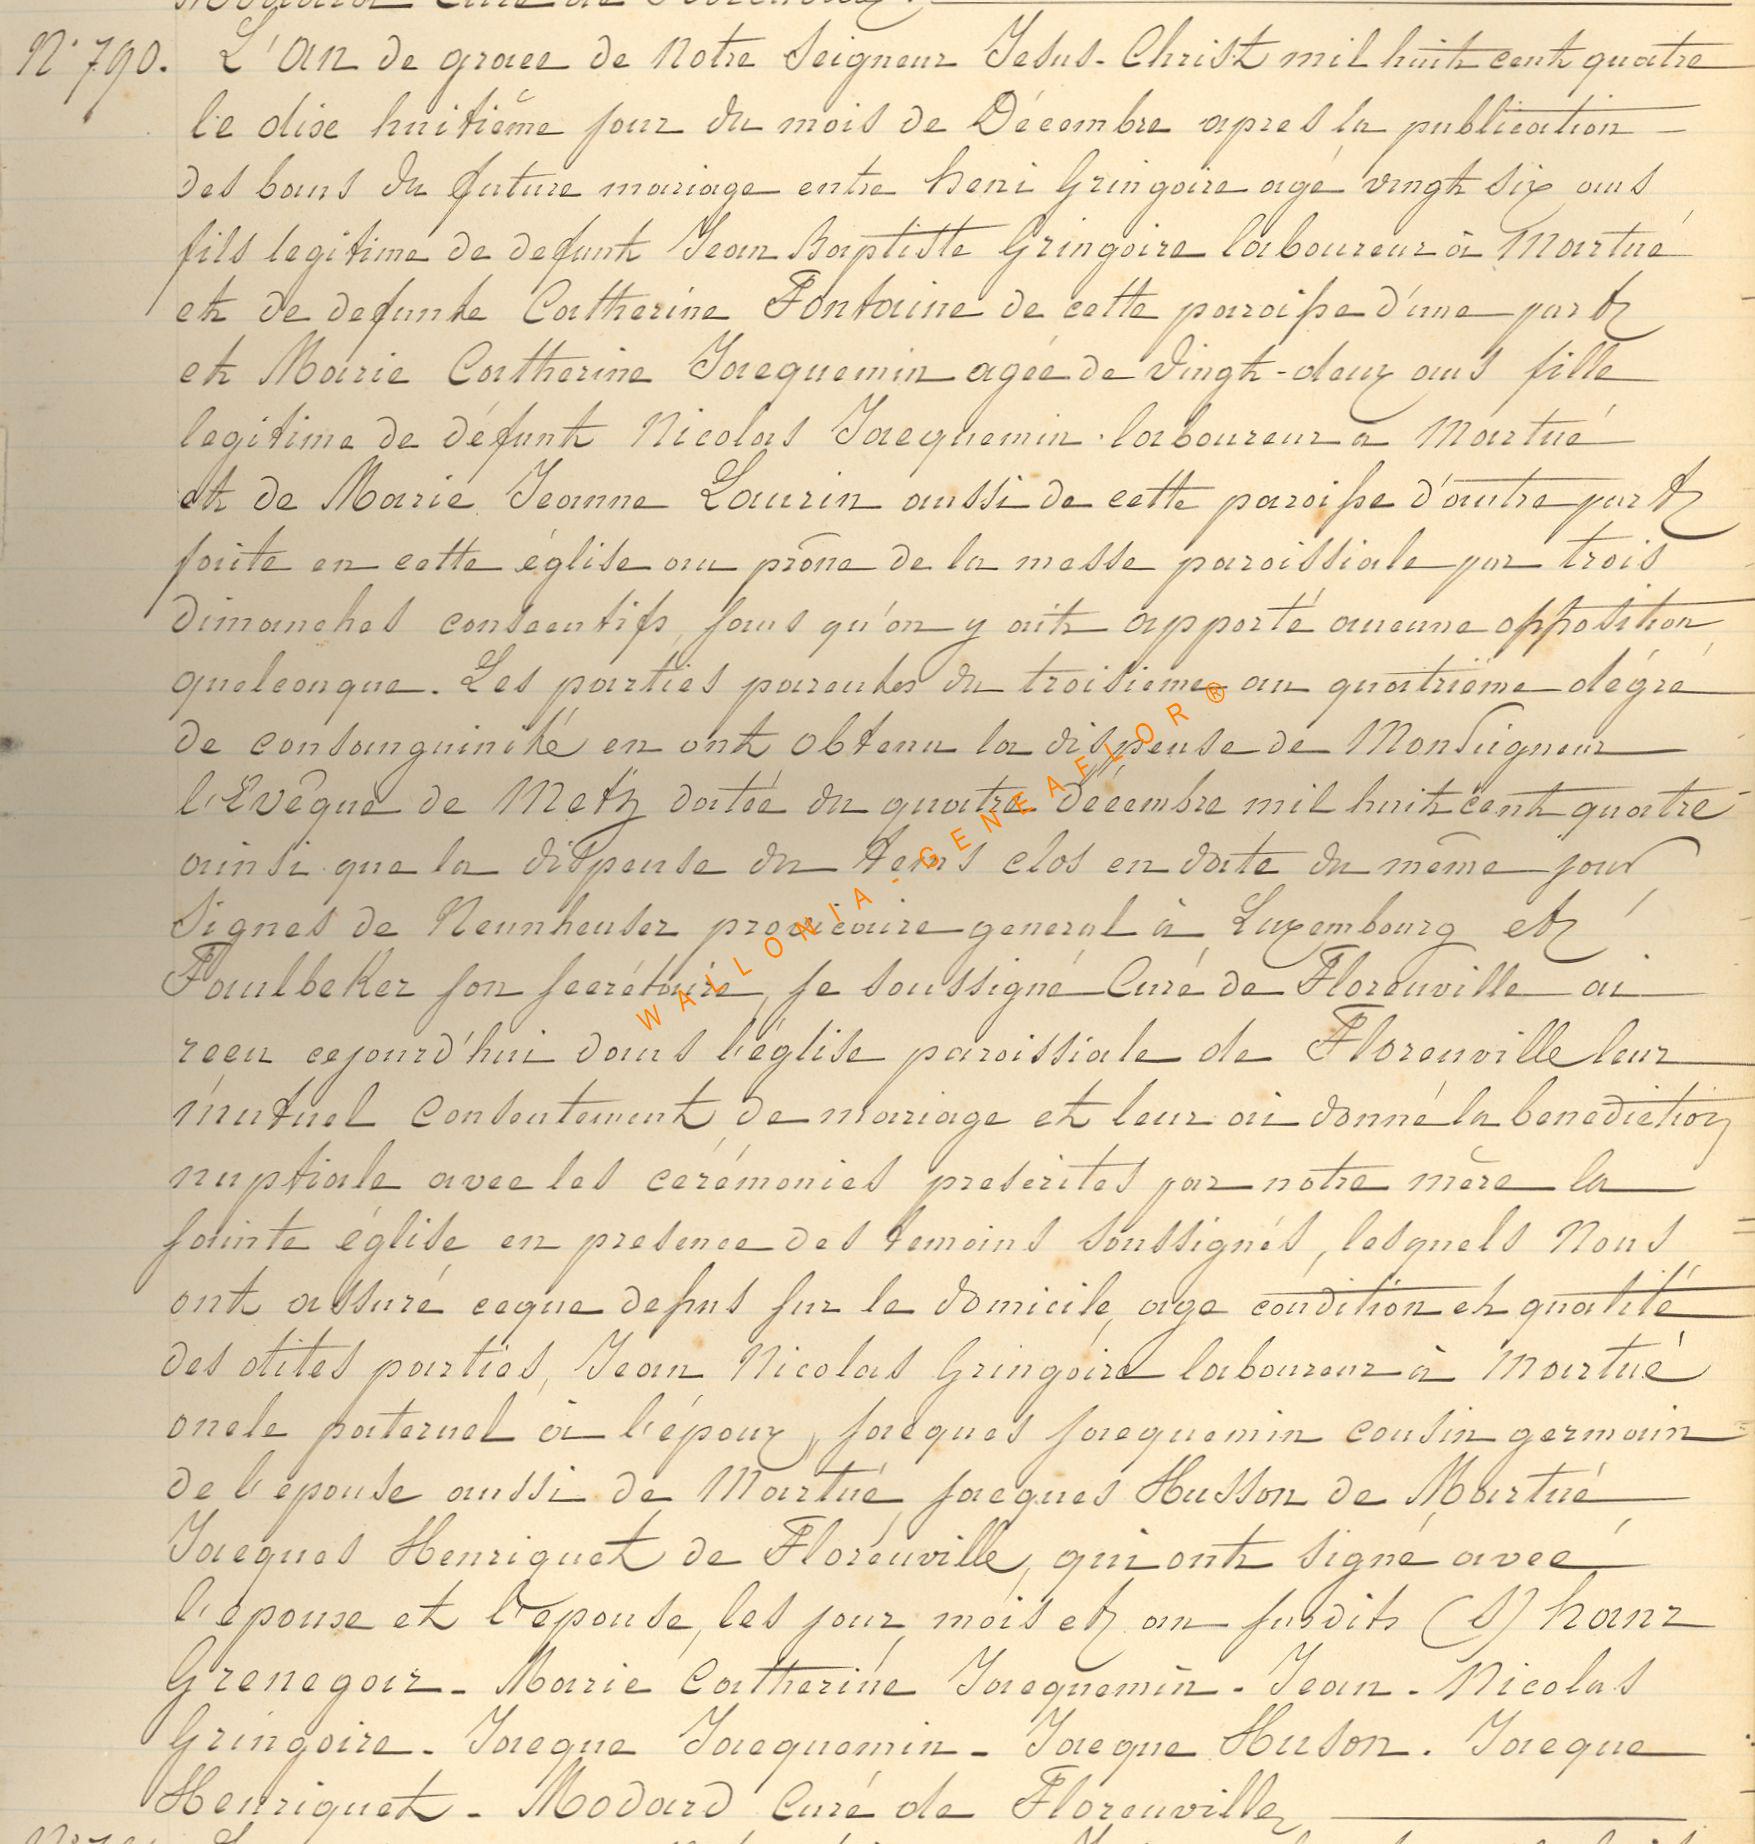 N° 790. L'An de grace de Notre Seigneur Jesus-Christ mil huit cent quatre
le dixe huitième jour du mois de Décembre apres la publication
des bans du future mariage entre henri Gringoire agé vingt six ans
fils legitime de defunt Jean Baptiste Gringoire laboureur à Martué
et de defunte Catherine Fontaine de cette paroisse d'une part
et Marie Catherine Jacquemin agée de vingt-deux ans fille
legitime de défunt Nicolas Jacquemin laboureur a Martué
et de Marie Jeanne Laurin aussi de cette paroisse d'autre part
faite en cette église au prône de la messe paroissiale par trois
dimanches consecutifs, sans qu'on y ait apporté aucune opposition
quelconque. Les parties parentes du troisieme au quatrième dégré
de consanguinité en ont obtenu la dispense de Monseigneur
l'Evêque de Metz datée du quatre décembre mil huit cent quatre
ainsi que la dispense du tems clos en date du même jour
signés de Neunheuser provicaire general à Luxembourg et
Faulbeker son secrétaire, je soussigné Curé de Florenville ai
recu cejourd'hui dans l'église paroissiale de Florenville leur
mutuel consentement de mariage et leur ai donné la benediction
nuptiale avec les cerémonies prescrites par notre mère la
sainte église en presence des temoins soussignés, lesquels nous
ont assuré ceque dessus sur le domicile, age condition et qualité
des dites parties, Jean Nicolas Gringoire laboureur à Martué
oncle paternel à l'époux, jacques jacquemin cousin germain
de l'epouse aussi de Martué, jacques Husson de Martué
Jacques Henriquet de Florenville, qui ont signé avec
l'epoux et l'epouse, les jour, mois et an susdits (S) hanr
Grenegoir - Marie Catherine Jacquemin - Jean - Nicolas
Gringoire - Jacque Jacquemin - Jacque Huson. Jacque
Henriquet - Modard Curé de Florenville
WALLONIA-GENEAFLOR®